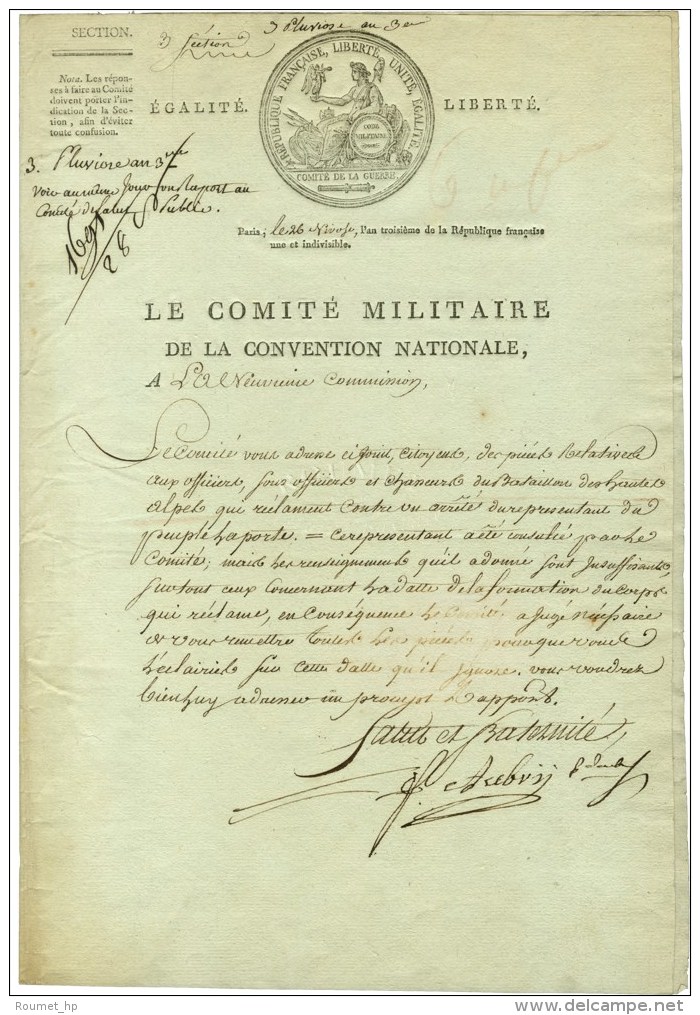 3 Pluviose an 3eme
SECTION.
3 Section
RÉPUBLIQUE FRANÇAISE, LIBERTÉ, UNITÉ, ÉGALITÉ.
CODE
MILITAIRE
COMITÉ DE LA GUERRE.
Nota. Les répon-
ses à faire au Comité
doivent porter l'in-
dication de la Sec-
tion, afin d'éviter
toute confusion.
ÉGALITÉ.
LIBERTÉ.
3. Pluviose an 3eme
Voir au même Jour un Raport au
Comité de Salut Public.
1691
28
Paris, le 26 Nivose, l'an troisième de la République française
une et indivisible.
LE COMITÉ MILITAIRE
DE LA CONVENTION NATIONALE,
A La Neuvieme Commission,
Le Comité vous adresse ci joint, citoyens, des pièces Relatives
aux officiers, sous officiers et chasseurs du Bataillon des hautes
alpes qui réclament contre un arrêté du representant du
peuple Laporte. = ce representant a été consulté par le
Comité; mais les renseignements qu'il a donné sont Insuffisants,
surtout ceux Concernant La datte de la formation du Corps
qui réclame, en conséquence le Comité a jugé nécessaire
de vous remettre toutes les pièces pour que vous
l'éclairiés sur cette datte qu'il ignore. vous voudrez
bien luy adresser un projet de rapport.
Salut et Fraternité
f. Aubry
Roumet_hp
© delcampe.net